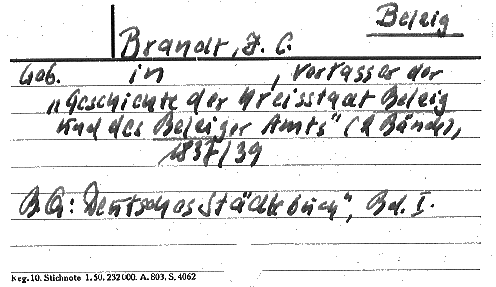 Belzig
Brandt, F. C.
Geb. in , Verfasser der
„Geschichte der Kreisstadt Belzig
und des Belziger Amts" (2 Bände),
1837/39
B.Q.: Deutsches Städtebuch", Bd. I.
Reg. 10. Stichnote 1. 50. 232000. A. 803. S. 4062